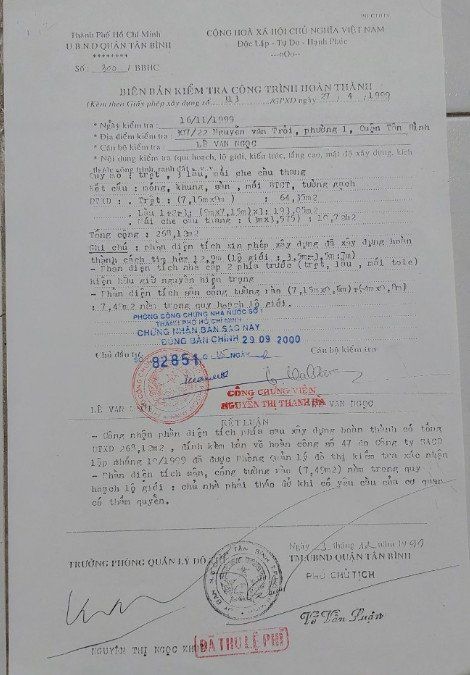 Thành Phố Hồ Chí Minh
U.B.N.D QUẬN TÂN BÌNH
********
Số : 300 / BBHC
CỘNG HOÀ XÃ HỘI CHỦ NGHĨA VIỆT NAM
Độc Lập - Tự Do - Hạnh Phúc
---oOo---
BIÊN BẢN KIỂM TRA CÔNG TRÌNH HOÀN THÀNH
(Kèm theo Giấy phép xây dựng số /GPXD ngày 27 / 4 /1999
* Ngày kiểm tra : 16/11/1999
* Địa điểm kiểm tra : Nguyễn văn Trỗi, phường 1, Quận Tân Bình
* Cán bộ kiểm tra : LÊ VĂN NGỌC
* Nội dung kiểm tra (qui hoạch, lộ giới, kiến trúc, tầng cao, mật độ xây dựng, kích
thước công trình, ranh đất
Quy mô : trệt, lầu, mái che cầu thang
Kết cấu : móng, khung, sàn, mái BTCT, tường gạch
DTXD : Trệt : (7,15mx9m) : 64,35m2
Tổng cộng : 268,13m2
Ghi chú : phần diện tích xin phép xây dựng đã xây dựng hoàn
thành cách tim hẻm 12,9m (lộ giới :
- Phần diện tích nhà cấp 2 phía trước (trệt, lầu, mái tole)
hiện hữu giữ nguyên hiện trạng
- Phần diện tích sân cổng tường rào
: 7,49m2 nằm trong quy hoạch lộ giới.
PHÒNG CÔNG CHỨNG NHÀ NƯỚC SỐ 1
THÀNH PHỐ HỒ CHÍ MINH
CHỨNG NHẬN BẢN SAO NÀY
ĐÚNG BẢN CHÍNH 29 09 2000
Chủ đầu tư
SỐ 82851 NGÀY
Cán bộ kiểm tra
CÔNG CHỨNG VIÊN
NGUYỄN THỊ THANH HÀ
LÊ VĂN
NGỌC
KẾT LUẬN
- Công nhận phần diện tích phía sau xây dựng hoàn thành có tổng
DTXD 268,13m2, đính kèm bản vẽ hoàn công số 47 do Công ty
lập tháng 10/1999 đã được Phòng Quản lý đô thị kiểm tra xác nhận
- Phần diện tích sân, cổng tường rào (7,49m2) nằm trong quy
hoạch lộ giới : chủ nhà phải tháo dỡ khi có yêu cầu của cơ quan
có thẩm quyền.
Ngày 3 tháng 12 năm 1999
TRƯỞNG PHÒNG QUẢN LÝ ĐÔ
TM.UBND QUẬN TÂN BÌNH
PHÓ CHỦ TỊCH
Võ Văn Luận
NGUYỄN THỊ NGỌC
ĐÃ THU LỆ PHÍ